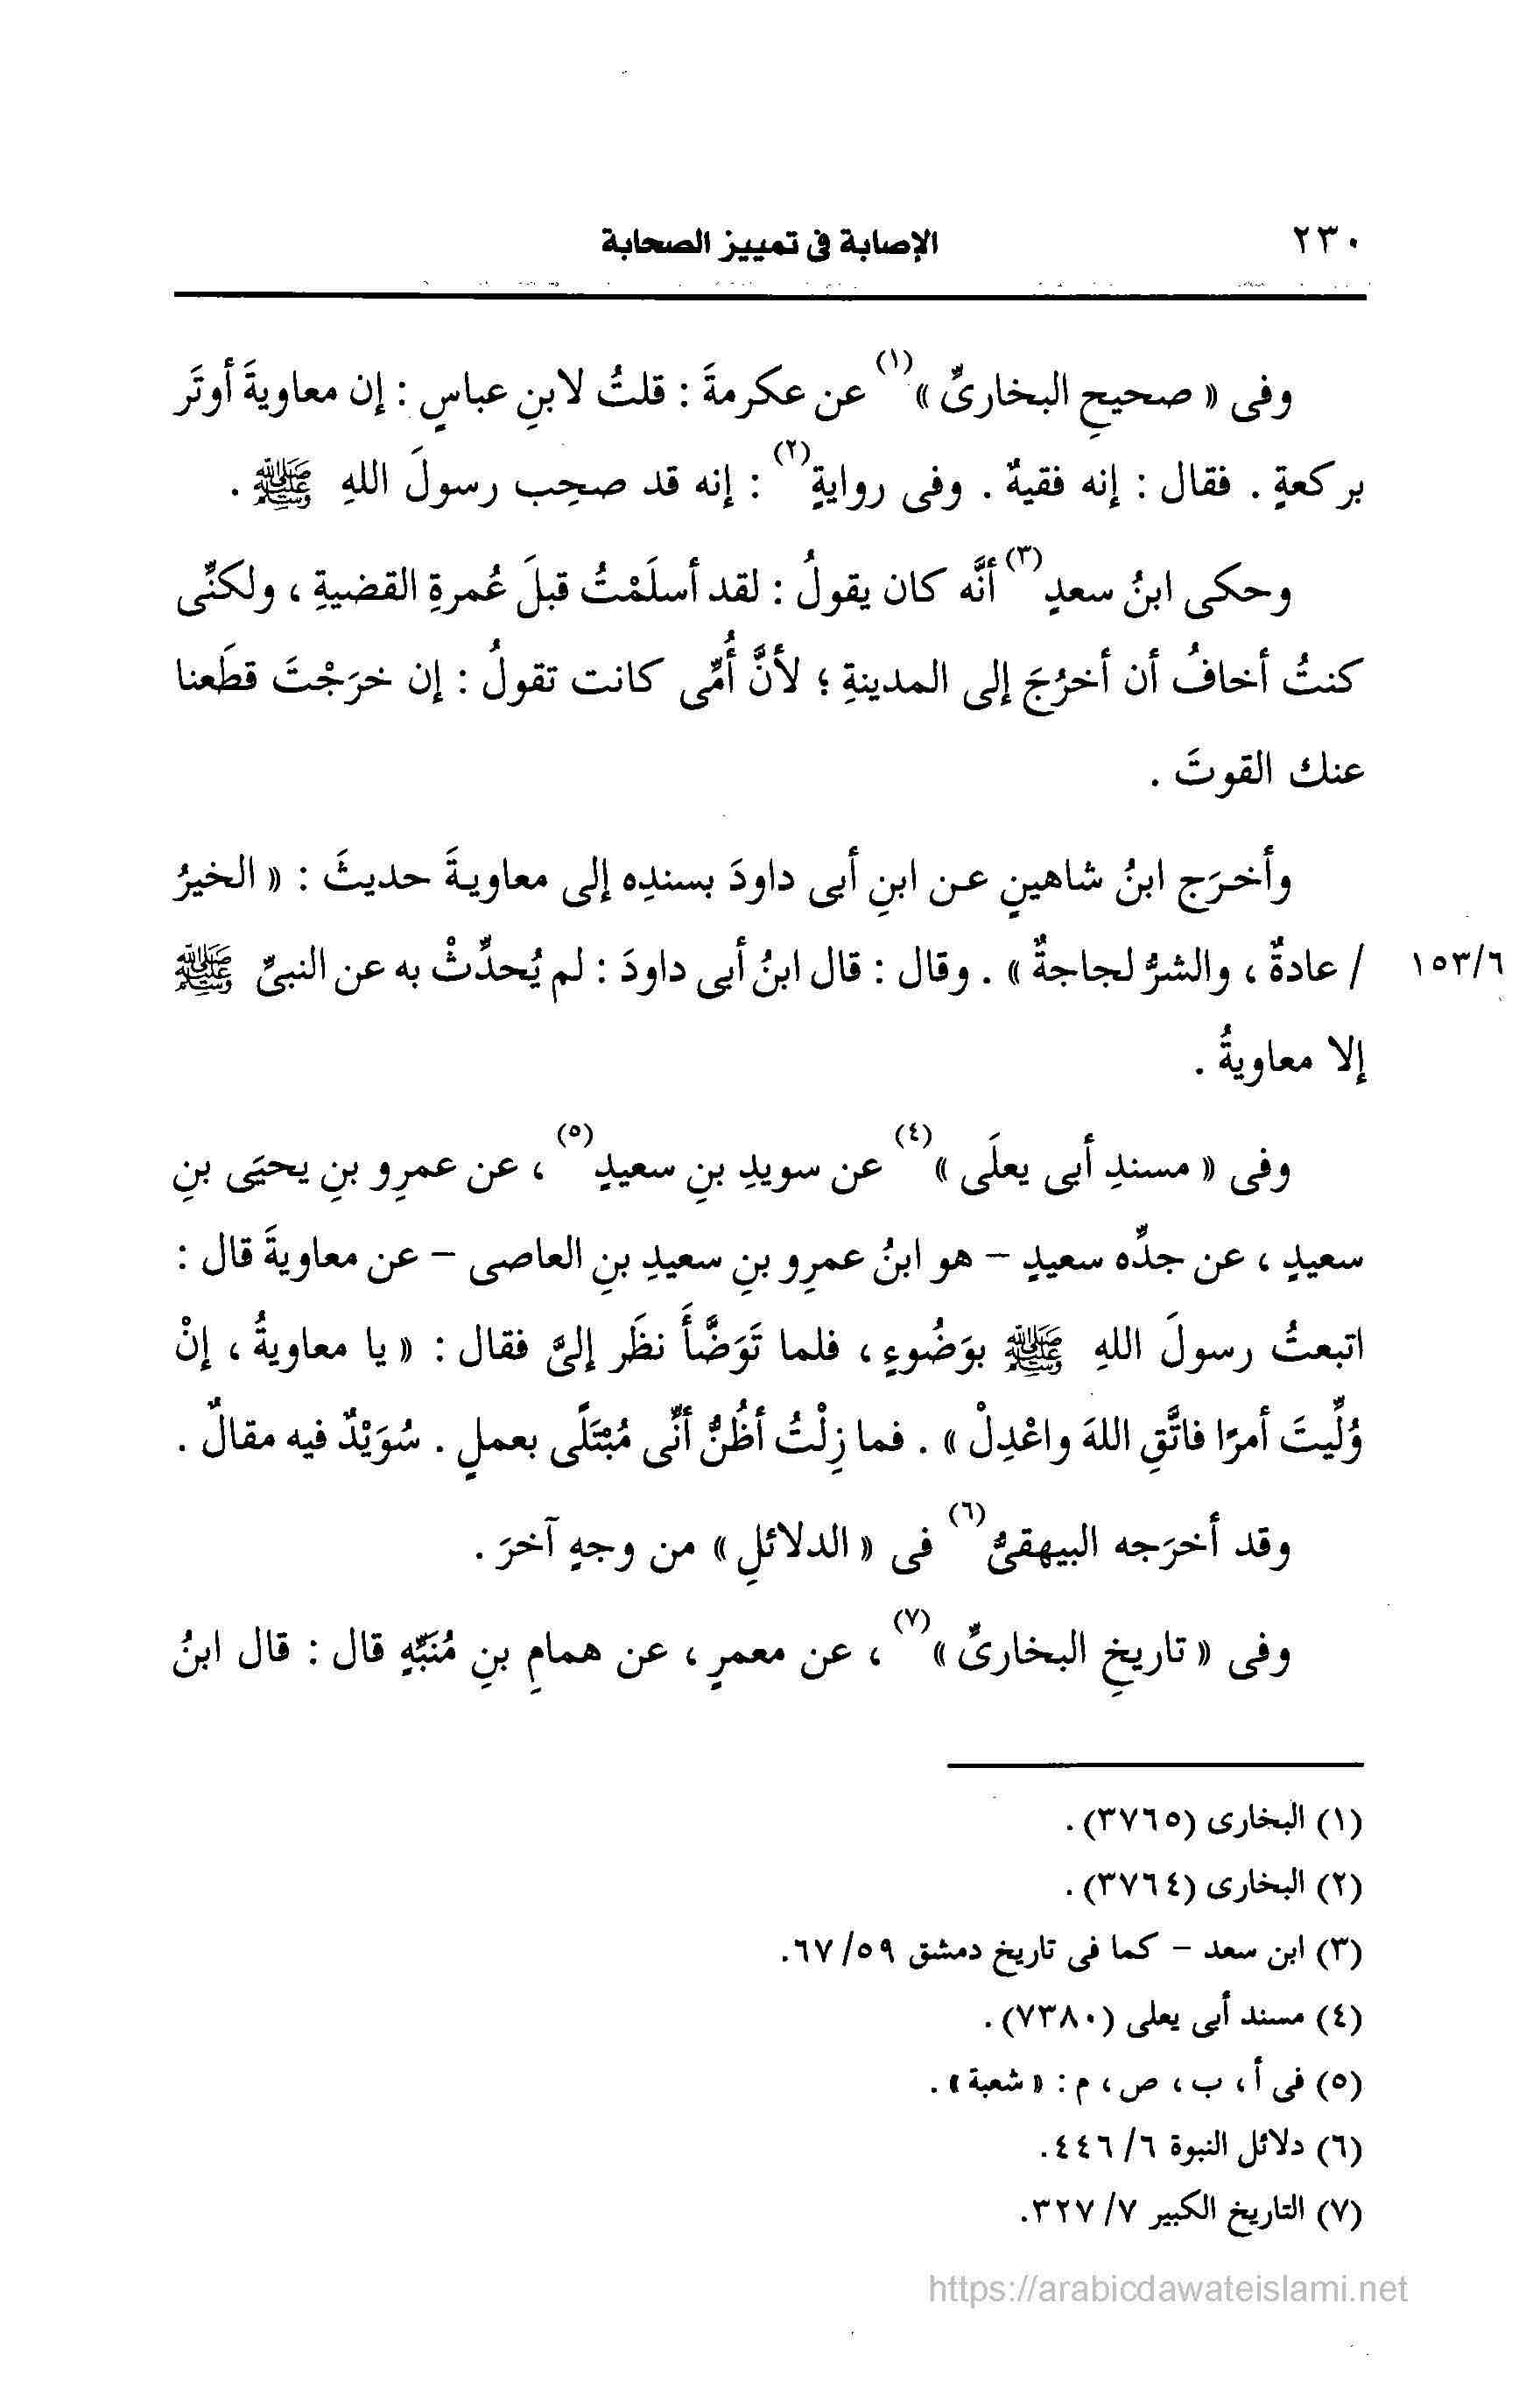 ٢٣٠ الإصابة فى تمييز الصحابة
وفى « صحيحِ البخارىِّ »(١) عن عكرمةَ : قلتُ لابنِ عباسٍ : إن معاويةَ أوتَر
بركعةٍ . فقال : إنه فقيهٌ . وفى روايةٍ(٢) : إنه قد صحِب رسولَ اللهِ ﷺ .
وحكى ابنُ سعدٍ(٣) أنَّه كان يقولُ : لقد أسلَمْتُ قبلَ عُمرةِ القضيةِ ، ولكنِّى
كنتُ أخافُ أن أخرُجَ إلى المدينةِ ؛ لأنَّ أُمِّى كانت تقولُ : إن خرَجْتَ قطَعنا
عنك القوتَ .
وأخرَج ابنُ شاهينٍ عن ابنِ أبى داودَ بسندِه إلى معاويةَ حديثَ : « الخيرُ
١٥٣/٦ / عادةٌ ، والشرُّ لجاجةٌ » . وقال : قال ابنُ أبى داودَ : لم يُحدِّثْ به عن النبىِّ ﷺ
إلا معاويةُ .
وفى « مسندِ أبى يعلَى »(٤) عن سويدِ بنِ سعيدٍ(٥) ، عن عمرِو بنِ يحيَى بنِ
سعيدٍ ، عن جدِّه سعيدٍ – هو ابنُ عمرِو بنِ سعيدِ بنِ العاصى – عن معاويةَ قال :
اتبعتُ رسولَ اللهِ ﷺ بوَضُوءٍ ، فلما تَوَضَّأَ نظَر إلىَّ فقال : « يا معاويةُ ، إنْ
وُلِّيتَ أمرًا فاتَّقِ اللهَ واعْدِلْ » . فما زِلْتُ أظُنُّ أنِّى مُبْتَلًى بعملٍ . سُوَيْدٌ فيه مقالٌ .
وقد أخرَجه البيهقىُّ(٦) فى « الدلائلِ » من وجهٍ آخرَ .
وفى « تاريخِ البخارىِّ »(٧) ، عن معمرٍ ، عن همامِ بنِ مُنَبِّهٍ قال : قال ابنُ
(١) البخارى (٣٧٦٥) .
(٢) البخارى (٣٧٦٤) .
(٣) ابن سعد – كما فى تاريخ دمشق ٥٩/ ٦٧.
(٤) مسند أبى يعلى (٧٣٨٠) .
(٥) فى أ ، ب ، ص ، م : « شعبة » .
(٦) دلائل النبوة ٦/ ٤٤٦.
(٧) التاريخ الكبير ٧/ ٣٢٧.
https://arabicdawateislami.net